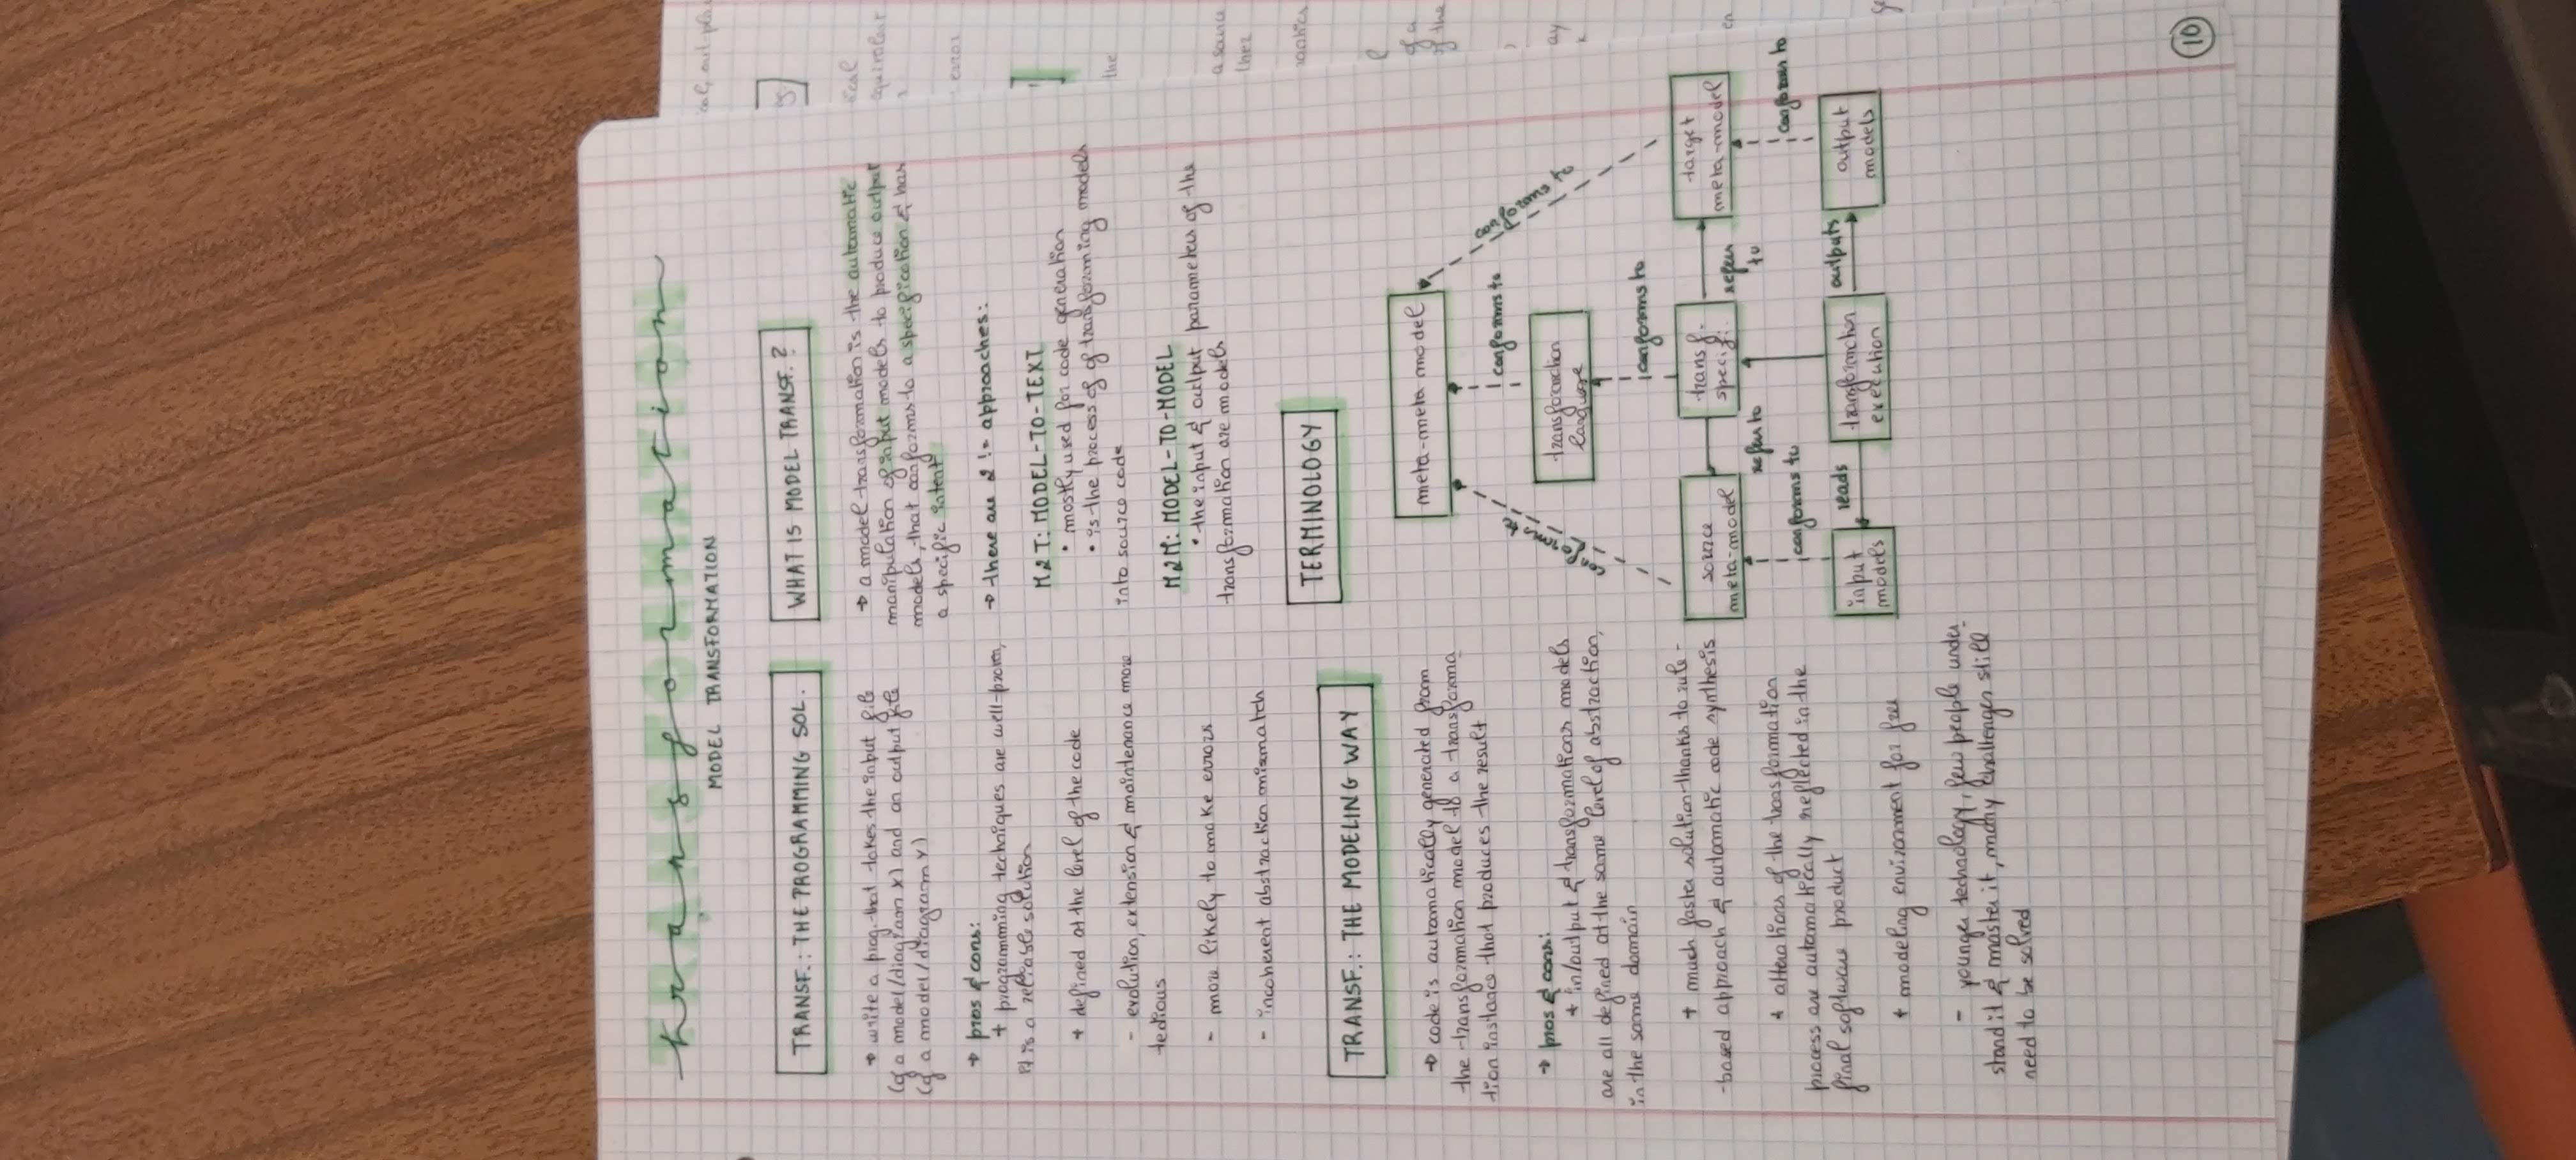 transformation
MODEL TRANSFORMATION
TRANSF.: THE PROGRAMMING SOL.
→ write a prog. that takes the input file
(of a model/diagram x) and an output file
(of a model/diagram y)
→ pros & cons:
+ programming techniques are well-prom,
it is a reliable solution
+ defined at the level of the code
- evolution, extension & maintenance more
tedious
- more likely to make errors
- incoherent abstraction mismatch
TRANSF.: THE MODELING WAY
→ code is automatically generated from
the transformation model to a transforma-
tion instance that produces the result
→ pros & cons:
+ in/output & transformations models
are all defined at the same level of abstraction,
in the same domain
+ much faster solution thanks to rule-
-based approach & automatic code synthesis
+ alterations of the transformation
process are automatically reflected in the
final software product
+ modeling environment for free
- younger technology, few people under-
stand it & master it, many challenges still
need to be solved
WHAT IS MODEL TRANSF.?
→ a model transformation is the automatic
manipulation of input models to produce output
models, that conforms to a specification & has
a specific intent
→ there are 2 != approaches:
M2T: MODEL-TO-TEXT
• mostly used for code generation
• is the process of of transforming models
into source code
M2M: MODEL-TO-MODEL
• the input & output parameters of the
transformation are models
TERMINOLOGY
meta-meta model
conforms to
conforms to
conforms to
transformation
language
conforms to
source
meta-model
refers to
transf.
specif.
refers
to
target
meta-model
conforms to
conforms to
input
models
reads
transformation
execution
outputs
output
models
10
the
error